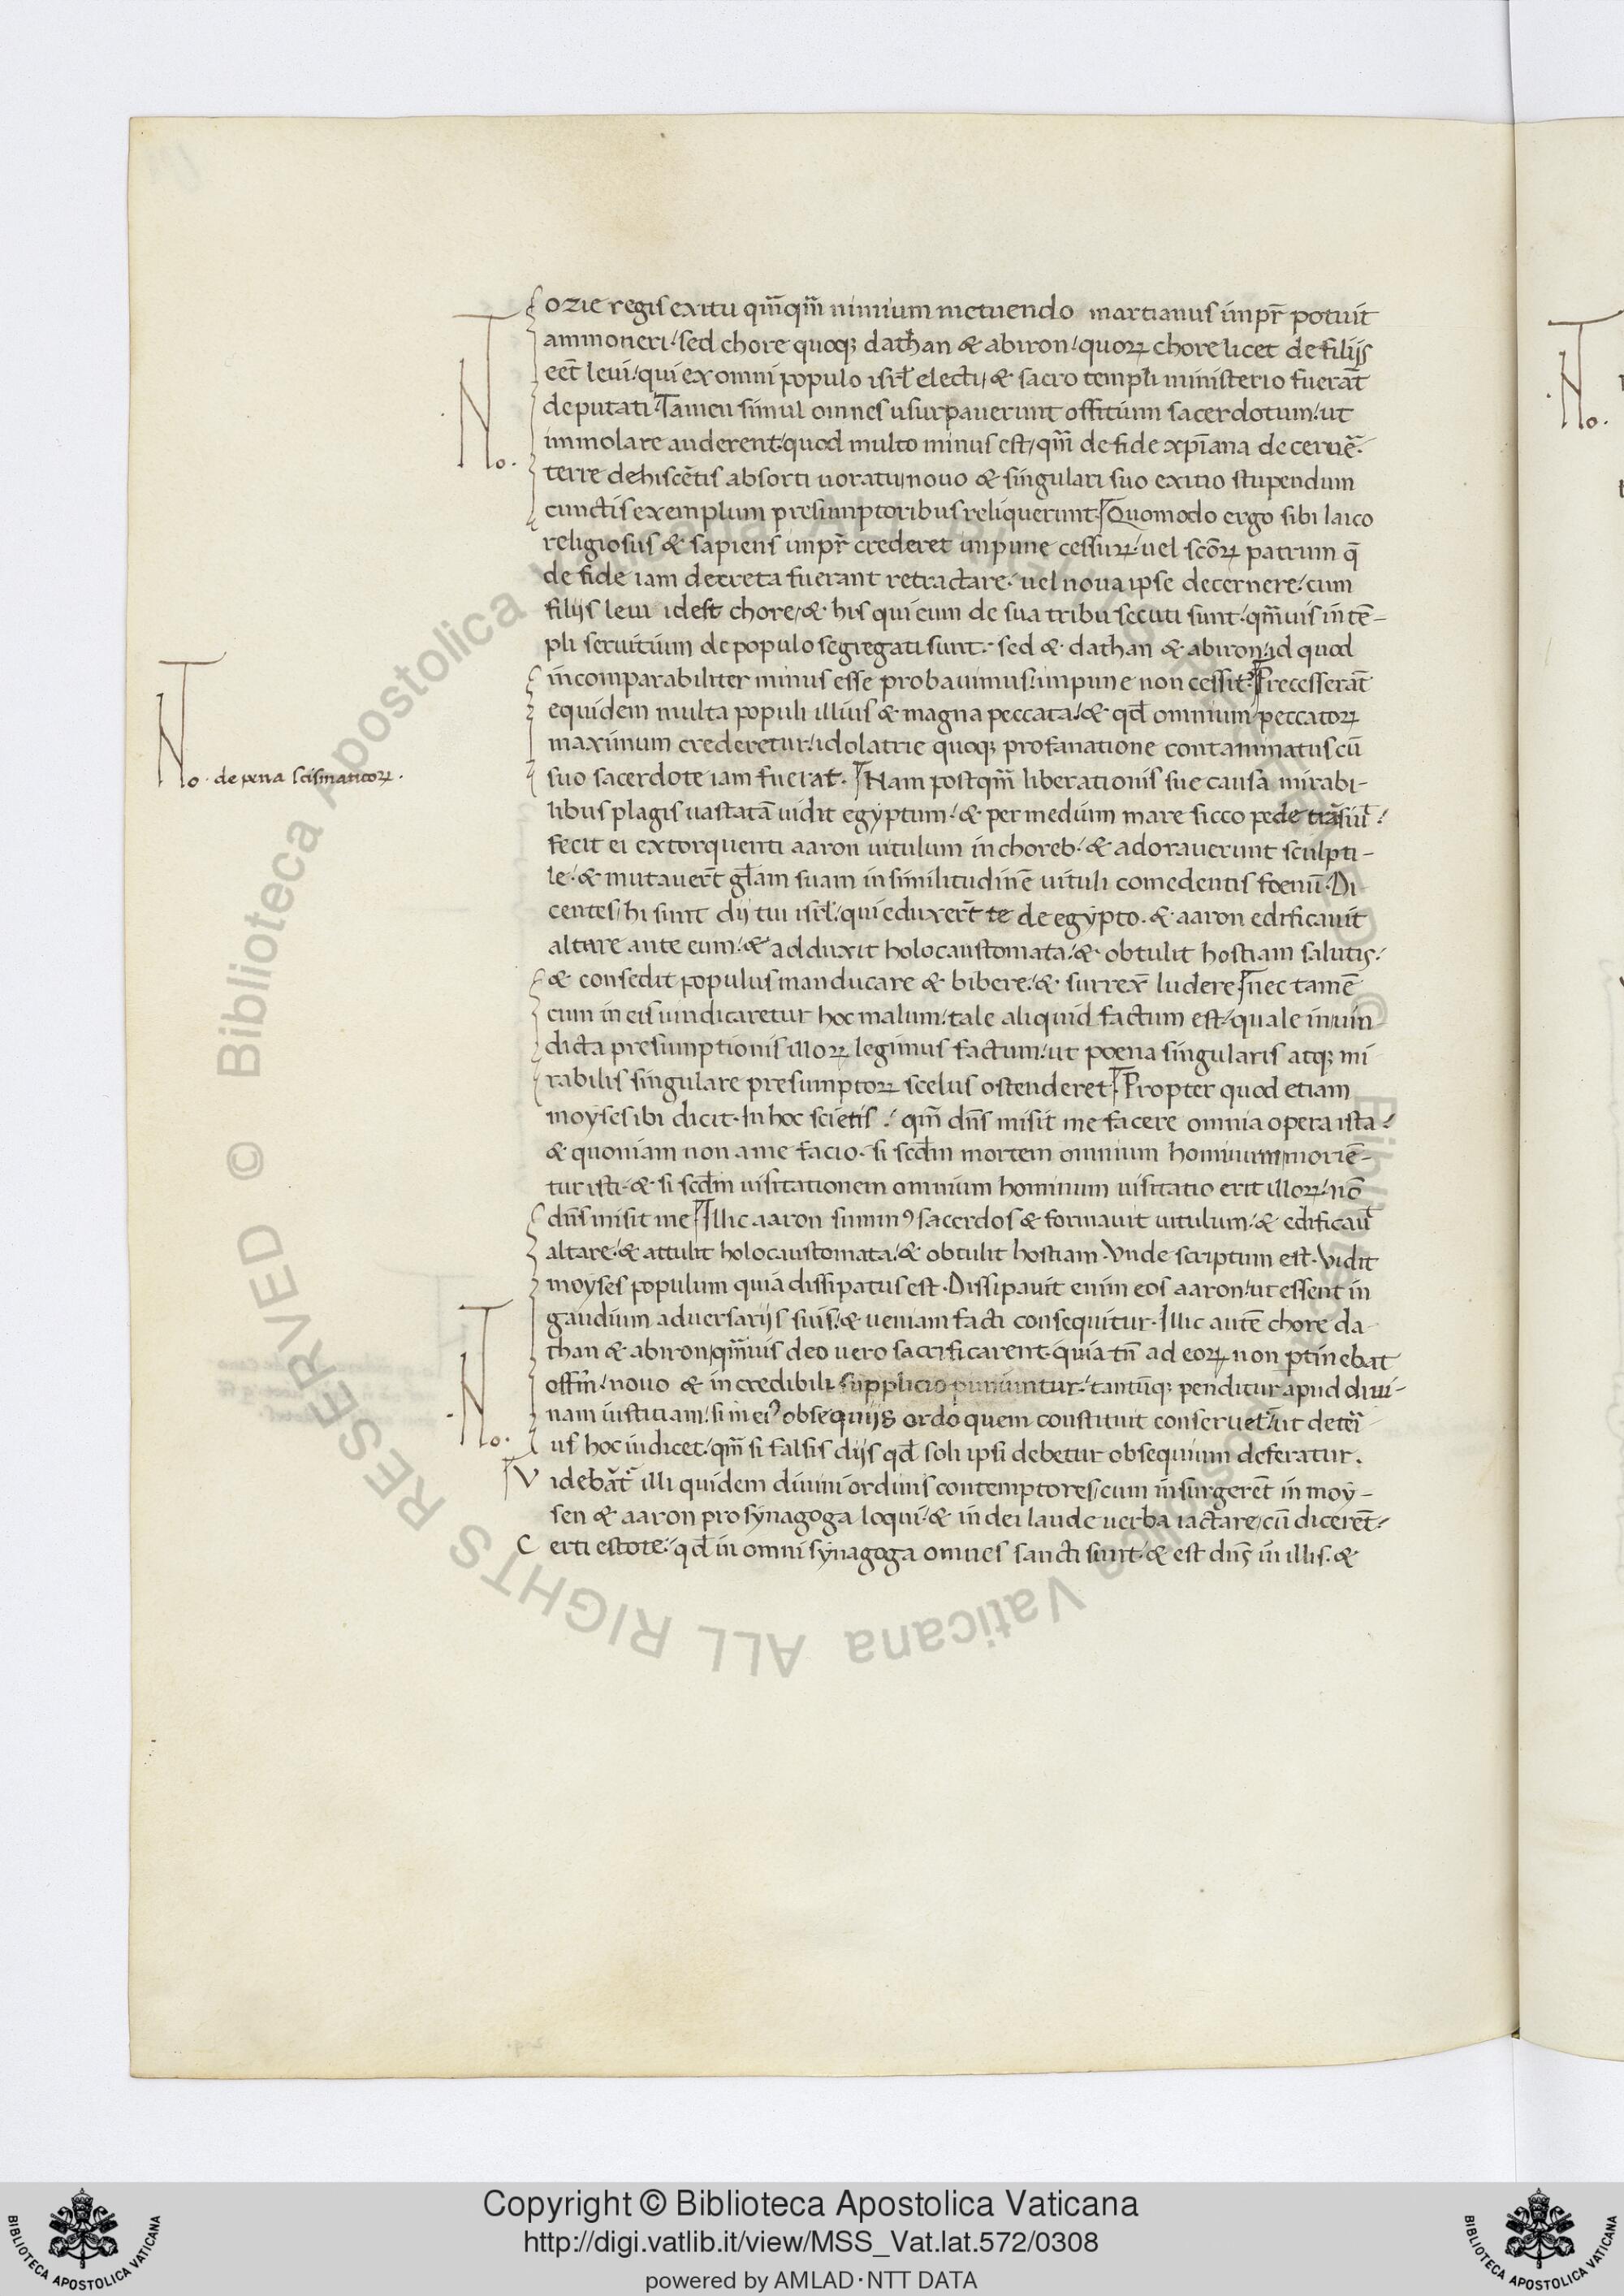 ozie regis exitu qm̅qm̅ nimium metuendo martianus imp̅r potuit
ammoneri. sed chore quoq; dathan & abiron. quoꝝ chore licet de filijs
eēt leui. qui ex omni populo isrł electi, & sacro templi ministerio fuerāt
deputati. Tamen simul omnes usurpauerunt offitium sacerdotum. ut
immolare auderent. quod multo minus est, qm̅ de fide xp̅iana decernē.
terre dehiscētis absorti uoratu, nouo & singulari suo exitio stupendum
cunctis exemplum presumptoribus reliquerunt. Quomodo ergo sibi laico
religiosus & sapiens imp̅r crederet impune cessuꝝ. uel sc̅oꝝ patrum q̅
de fide iam decreta fuerant retractare. uel noua ipse decernere. cum
filijs leui idest chore, & his qui eum de sua tribu secuti sunt. qm̅uis in tē-
pli seruitium de populo segregati sunt. sed & dathan & abiron. id quod
incomparabiliter minus esse probauimus. impune non cessit. Precesserāt
equidem multa populi illius & magna peccata. & qd̅ omnium peccatoꝝ
maximum crederetur. idolatrie quoq; profanatione contaminatus cū
No. de pena scismaticoꝝ.
suo sacerdote iam fuerat. Nam postqm̅ liberationis sue causa mirabi-
libus plagis uastatā uidit egyptum. & per medium mare sicco pede trāsiuł.
fecit ei extorquenti aaron uitulum in choreb. & adorauerunt sculpti-
le. & mutauer̄t gl̅am suam in similitudinē uituli comedentis foenū. Di
centes, hi sunt dij tui isrł. qui eduxer̄t te de egypto. & aaron edificauit
altare ante eum. & adduxit holocaustomata. & obtulit hostiam salutis.
& consedit populus manducare & bibere. & surrex̄ ludere nec tamē
cum in eis uindicaretur hoc malum. tale aliquid factum est. quale in uin
dicta presumptionis illoꝝ legimus factum. ut poena singularis atq; mi
rabilis singulare presumptoꝝ scelus ostenderet. Propter quod etiam
moyses ibi dicit. In hoc scietis. qm̅ dn̅s misit me facere omnia opera ista.
& quoniam non a me facio. si scd̅m mortem omnium hominum moriē-
tur isti. & si scd̅m uisitationem omnium hominum uisitatio erit illoꝝ. nō
dn̅s misit me Illic aaron summꝰ sacerdos & formauit uitulum. & edificauł
altare. & attulit holocaustomata. & obtulit hostiam. Vnde scriptum est. Vidit
moyses populum quia dissipatus est. Dissipauit enim eos aaron. ut essent in
gaudium aduersarijs suis. & ueniam facti consequitur. Illic autē chore da
than & abiron, qm̅uis deo uero sacrificarent. quia tn̅ ad eoꝝ non ꝑtinebat
No.
offm̅. nouo & incredibili supplicio puniuntur. tantūq; penditur apud diui-
nam iustitiam. si in eiꝰ obsequijs ordo quem constituit conseruet̄. ut deteri
us hoc iudicet. qm̅ si falsis dijs qd̅ soli ipsi debetur obsequium deferatur.
Videbāt̄ illi quidem diuini ordinis contemptores, cum insurgerēt in moy-
sen & aaron pro synagoga loqui. & in dei laude uerba iactare, cū dicerēt.
Certi estote. qd̅ in omni synagoga omnes sancti sunt. & est dn̅s in illis. &
No.
No.
Copyright © Biblioteca Apostolica Vaticana
http://digi.vatlib.it/view/MSS_Vat.lat.572/0308
powered by AMLAD·NTT DATA
BIBLIOTECA APOSTOLICA VATICANA
BIBLIOTECA APOSTOLICA VATICANA
© Biblioteca Apostolica Vaticana ALL RIGHTS RESERVED